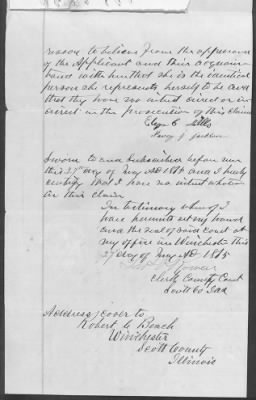 reason to believe from the appearance
of the Applicant and their acquain-
tance with her that she is the identical
person she represents herself to be and
that they have no interest direct or in-
direct in the prosecution of this claim
Nancy J. Jackson
Sworn to and subscribed before me
this 27th day of AD 18 and I hereby
certify that I have no interest whatever
in this claim
In testimony whereof I
have hereunto set my hand
and the seal of said court at
my office in Winchester this
27 day of AD 18
Clerk County Court
Scott Co Ills
Address cover to
Robert C Beach
Winchester
Scott County
Illinois